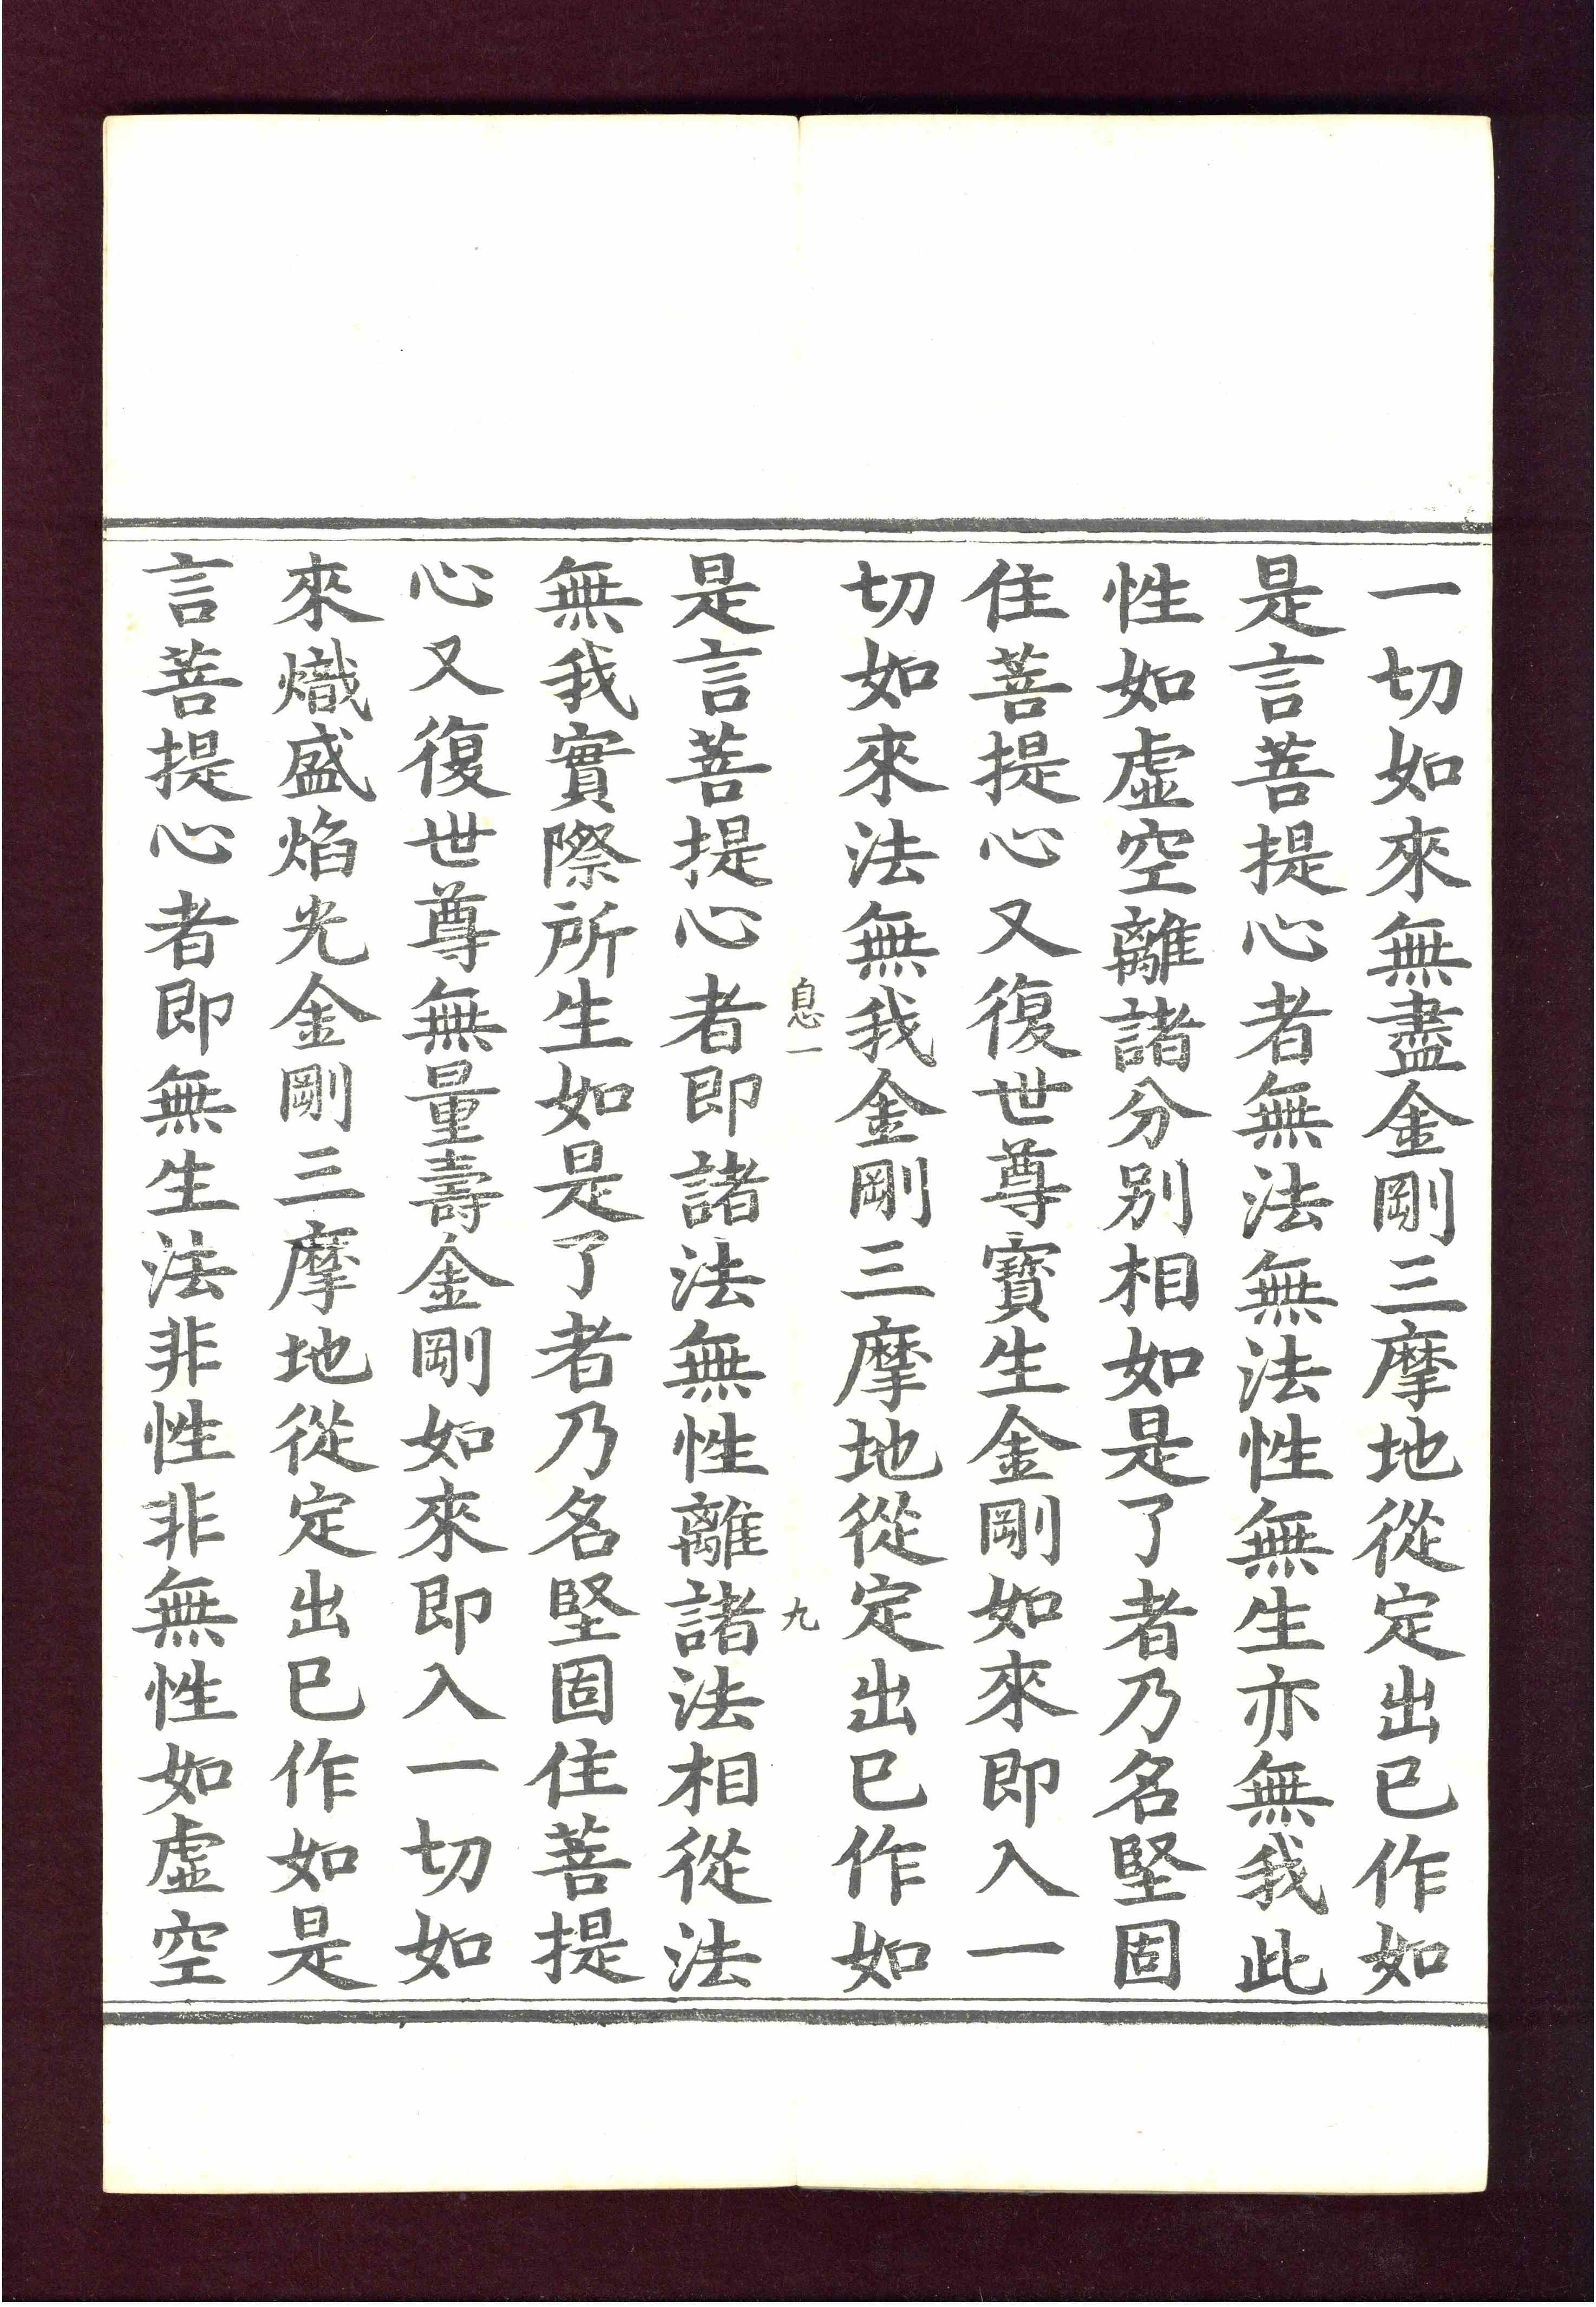 一切如來無盡金剛三摩地從定出已作如
是言菩提心者無法無法性無生亦無我此
性如虛空離諸分別相如是了者乃名堅固
住菩提心又復世尊寶生金剛如來即入一
切如來法無我金剛三摩地從定出已作如
息一
九
是言菩提心者即諸法無性離諸法相從法
無我實際所生如是了者乃名堅固住菩提
心又復世尊無量壽金剛如來即入一切如
來熾盛焰光金剛三摩地從定出已作如是
言菩提心者即無生法非性非無性如虛空